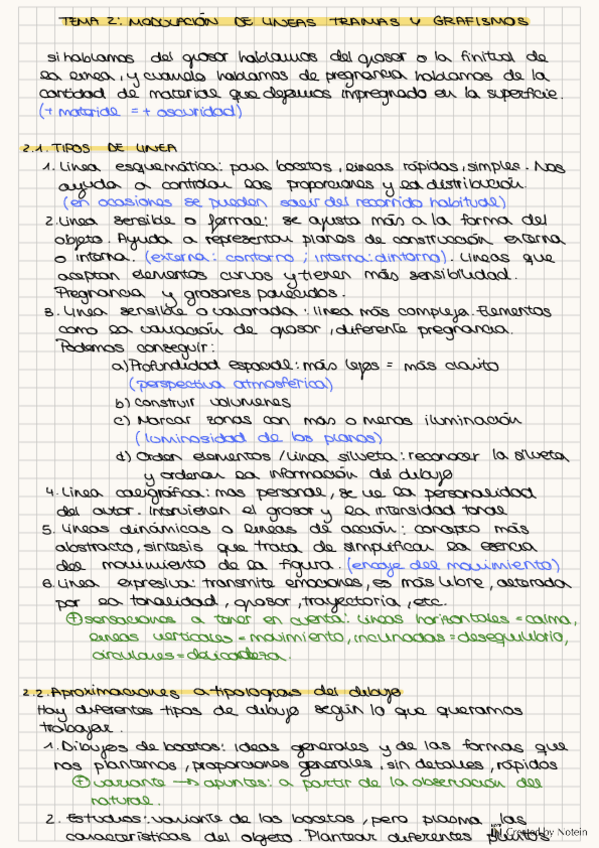 TEMA 2: MODULACIÓN DE LINEAS TRAMAS Y GRAFISMOS
si hablamos del grosor hablamos del grosor o la finitud de
la linea, y cuando hablamos de pregnancia hablamos de la
cantidad de material que dejamos impregnado en la superficie.
(+ materide = + oscuridad)
2.1. TIPOS DE LINEA
1. Linea esquemática: para bocetos, lineas rápidas, simples. Nos
ayuda a controlar las proporciones y la distribución.
(en ocasiones se pueden salir del recorrido habitual)
2. Linea sensible o formal: se ajusta más a la forma del
objeto. Ayuda a representar planos de construcción externa
o interna. (externa: contorno ; interna: dintorno). Lineas que
aceptan elementos curvos y tienen más sensibilidad.
Pregnancia y grosores parecidos.
3. Linea sensible o valorada: linea más compleja. Elementos
como la variación de grosor, diferente pregnancia.
Podemos conseguir:
a) Profundidad espacial: más lejos = más clarito
(perspectiva atmosférica)
b) construir volumenes
c) Marcar zonas con más o menos iluminación
(luminosidad de los planos)
d) Orden elementos / linea silueta: reconocer la silueta
y ordenar la información del dibujo
4. Linea caligráfica: mas personal, se ve la personalidad
del autor. Intervienen el grosor y la intensidad tonal
5. Lineas dinámicas o lineas de acción: concepto más
abstracto, sintesis que trata de simplificar la esencia
del movimiento de la figura. (encaje del movimiento)
6. Linea expresiva: transmite emociones, es más libre, alterada
por la tonalidad, grosor, trayectoria, etc.
+ sensaciones a tener en cuenta: lineas horizontales = calma,
lineas verticales = movimiento, inclinadas = desequilibrio,
circulares = delicadeza.
2.2. Aproximaciones a tipologias del dibujo
Hay diferentes tipos de dibujo según lo que queramos
trabajar.
1. Dibujos de bocetos: ideas generales y de las formas que
nos plantemos, proporciones generales, sin detalles, rápidos
+ variante → apuntes: a partir de la observación del
natural.
2. Estudios: variante de los bocetos, pero plasma las
características del objeto. Plantear diferentes puntos
Created by Notein